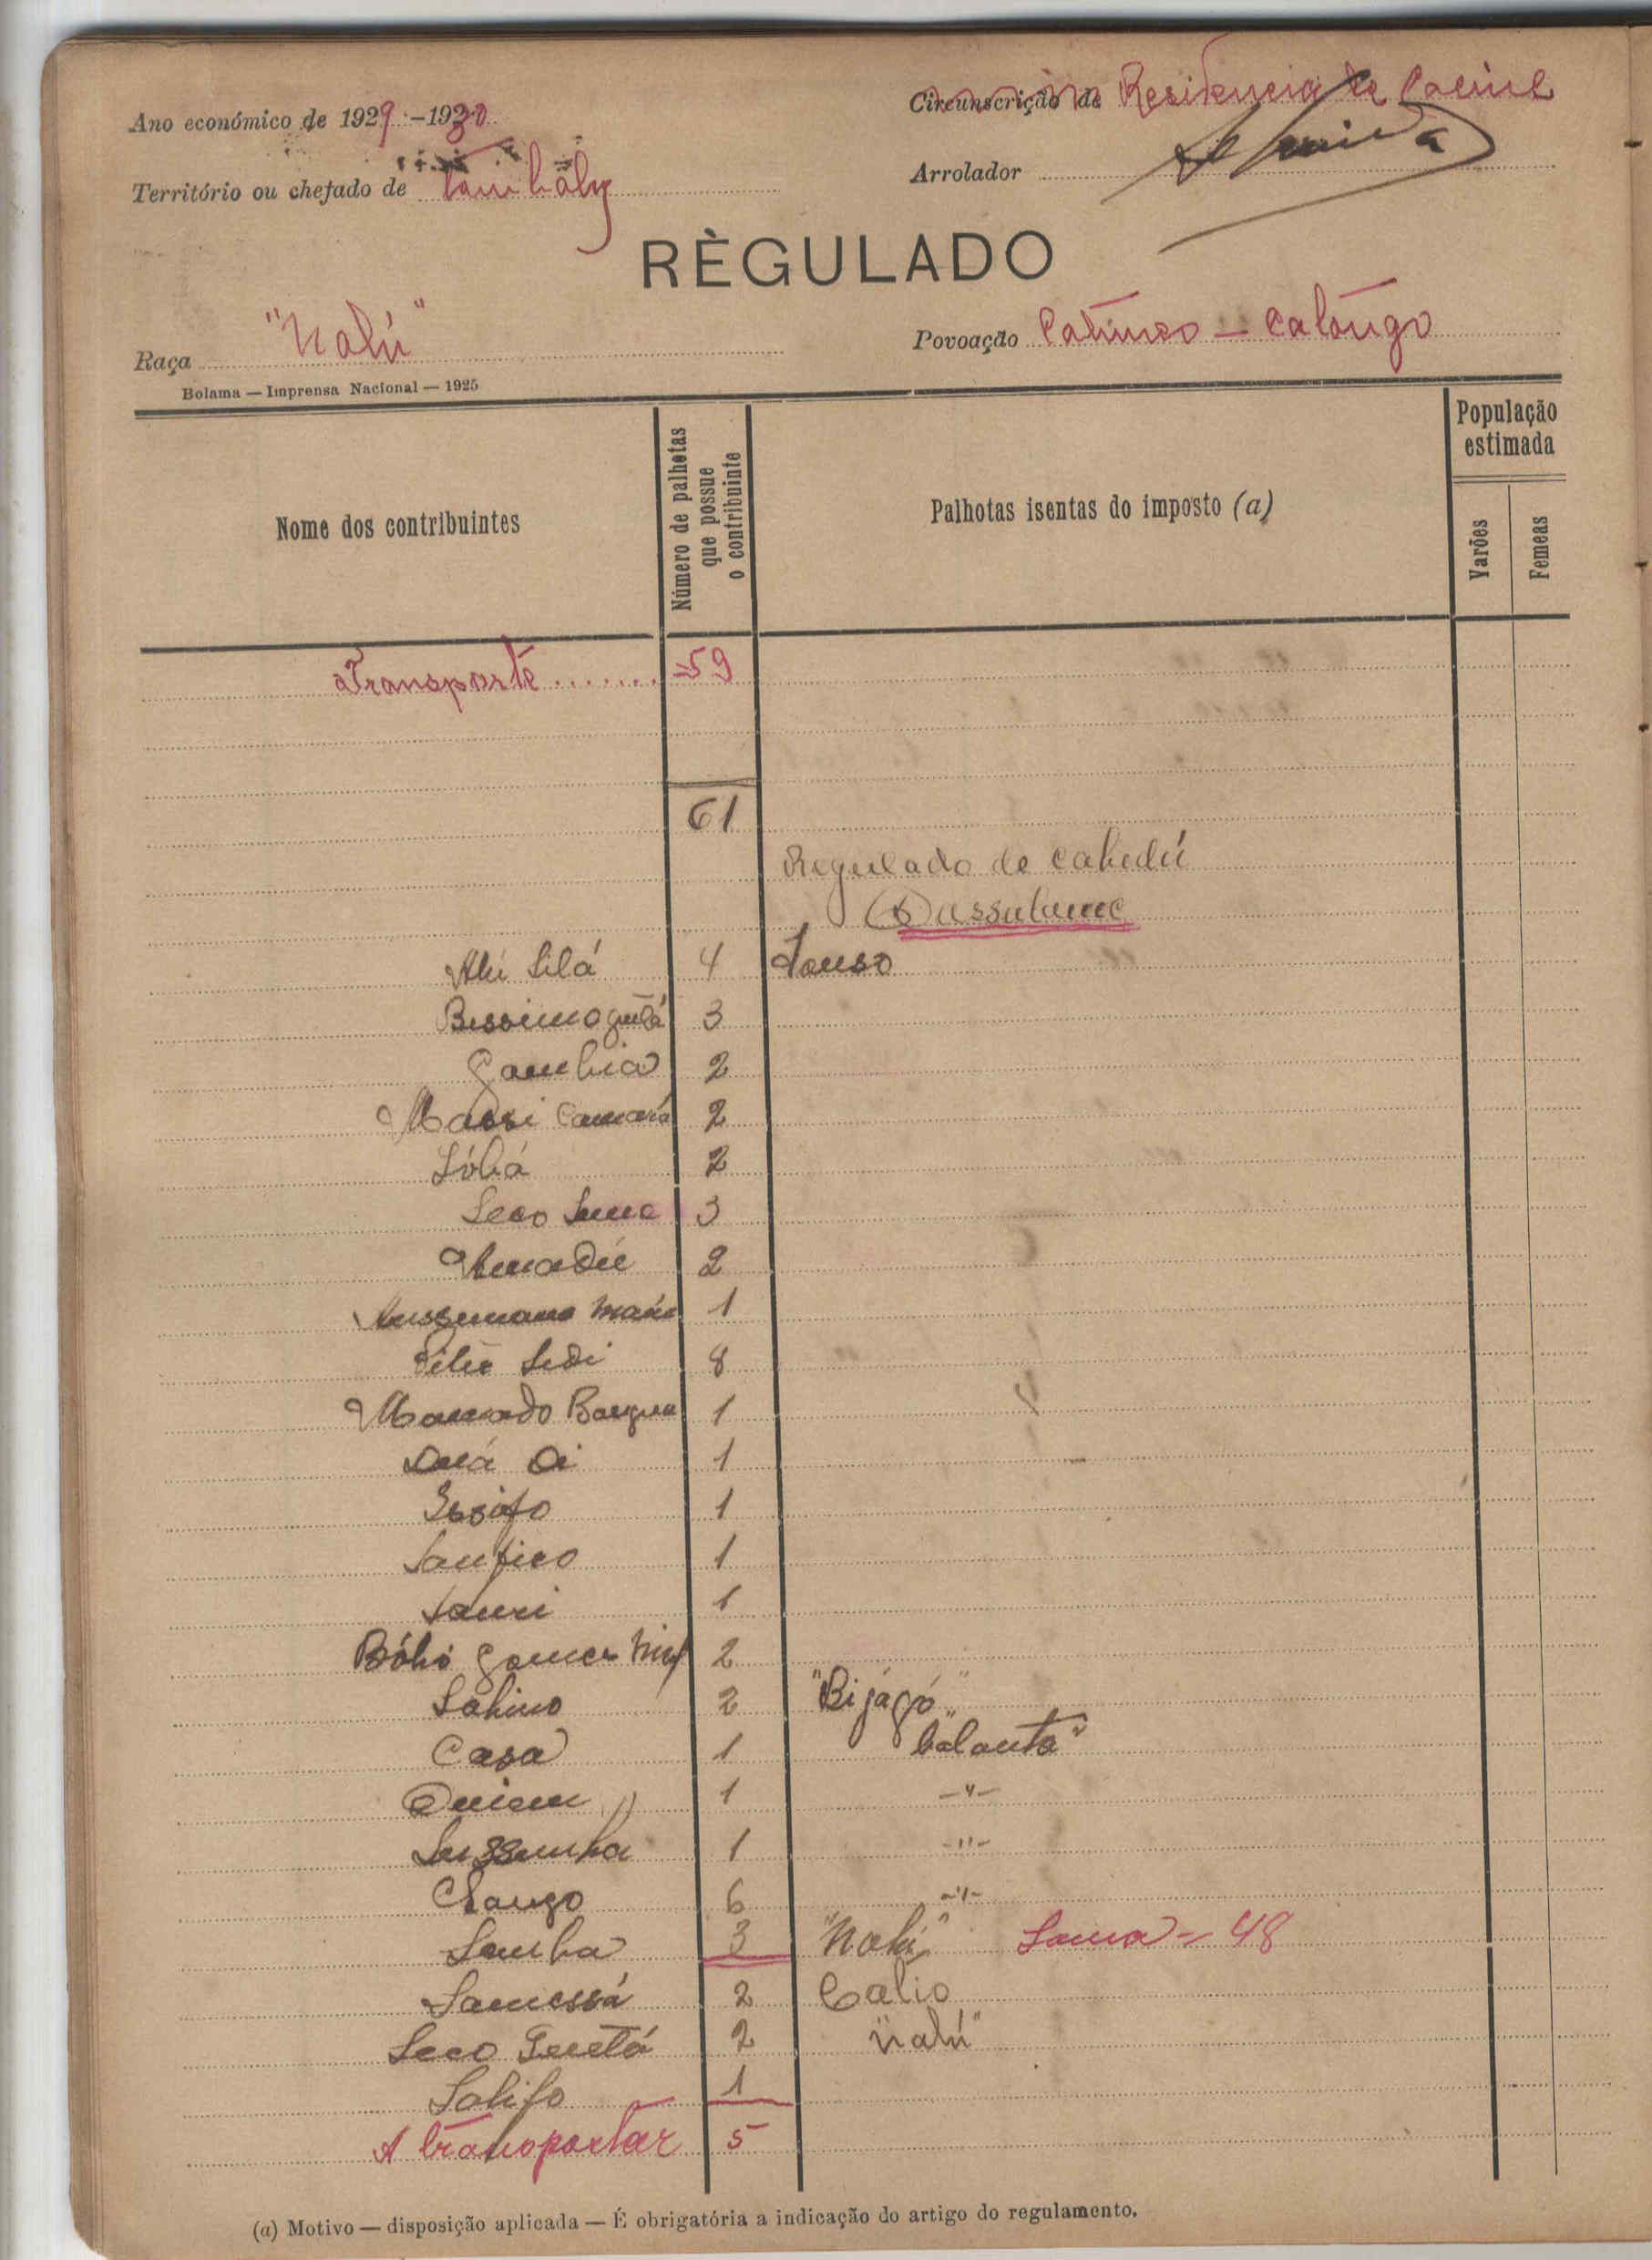 Ano económico de 1929-1930
Circunscrição de Residencia de Cacine
Território ou chefado de Tambaly
Arrolador
RÈGULADO
Raça "Nalú"
Povoação Catunco - Calongo
Bolama — Imprensa Nacional — 1925
Nome dos contribuintes
Número de palhotas que possue o contribuinte
Palhotas isentas do imposto (a)
População estimada
Varões
Femeas
Transporte ....... 59
61
Regulado de Cabedú
Cassubume
Alú Silá 4 Souso
Bessimo 3
Gambia 2
Massi Camará 2
Sóbá 2
Seco 3
Amadú 2
Ansumane Mané 1
Sedi 8
Mamado 1
1
Issifo 1
Sanfico 1
Sauri 1
Bóbó Gomes 2
Sabino 2 "Bijágó"
Casa 1 balanta"
1 -"-
Sussunha 1 -"-
Chango 6 -"-
Samba 3 "Nalú" Soma = 48
Samessá 2 Calio
Seco Turetá 2 "nalú"
Salifo 1
A transportar 5
(a) Motivo — disposição aplicada — É obrigatória a indicação do artigo do regulamento.